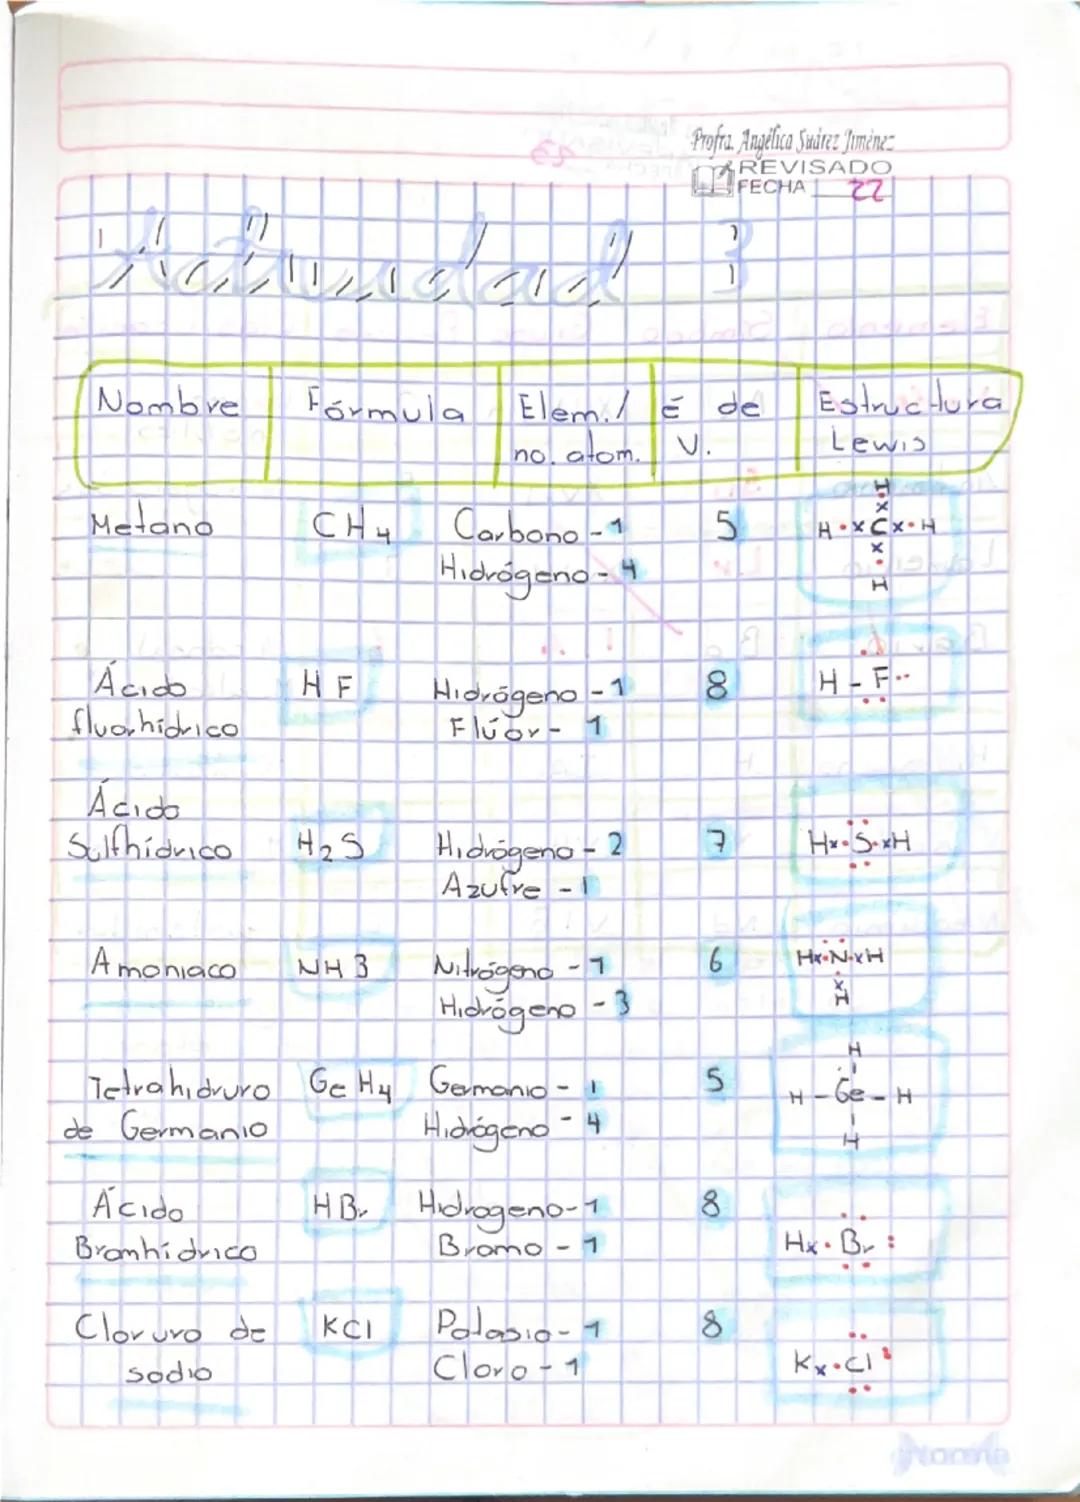 Profra. Angélica Suárez Jiménez
REVISADO
FECHA 22
Actividad 3
Nombre Fórmula Elem./ no. atom. é de v. Estructura Lewis
Metano CH4 Carbono - 1 5 H
H •x C x• H
Hidrógeno - 4
H
Ácido HF Hidrógeno - 1 8 H - F
fluorhídrico Flúor - 1
Ácido
Sulfhídrico H2S Hidrógeno - 2 7 Hx•S•xH
Azufre - 1
Amoniaco NH3 Nitrógeno - 1 6 Hx•N•xH
Hidrógeno - 3 x
H
H
Tetrahidruro GeH4 Germanio - 1 5 H - Ge - H
de Germanio Hidrógeno - 4
H
Ácido HBr Hidrogeno - 1 8
Bromhídrico Bromo - 1 Hx•Br:
Cloruro de KCl Potasio - 1 8
sodio Cloro - 1 Kx•Cl:
Norma